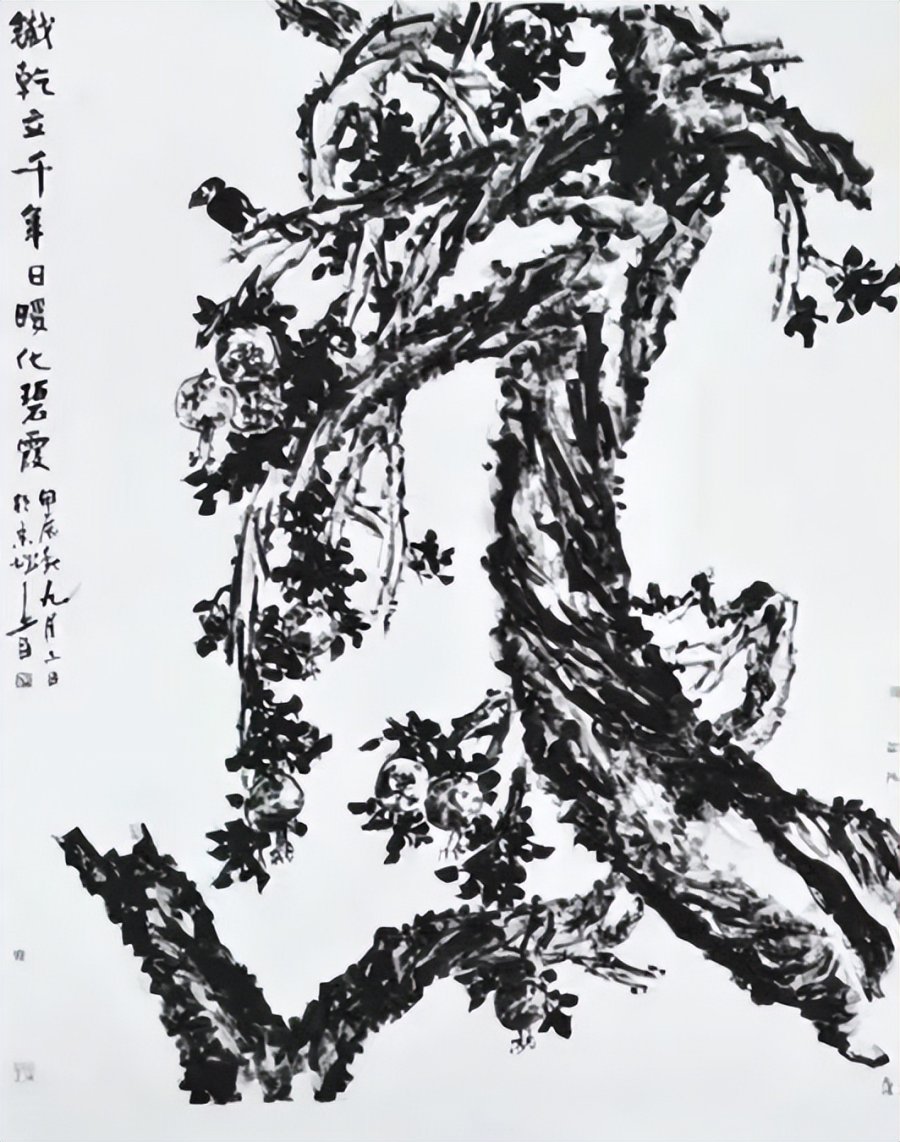 鐵乾立千年日暖化碧霞
甲辰秋九月二日
於京城